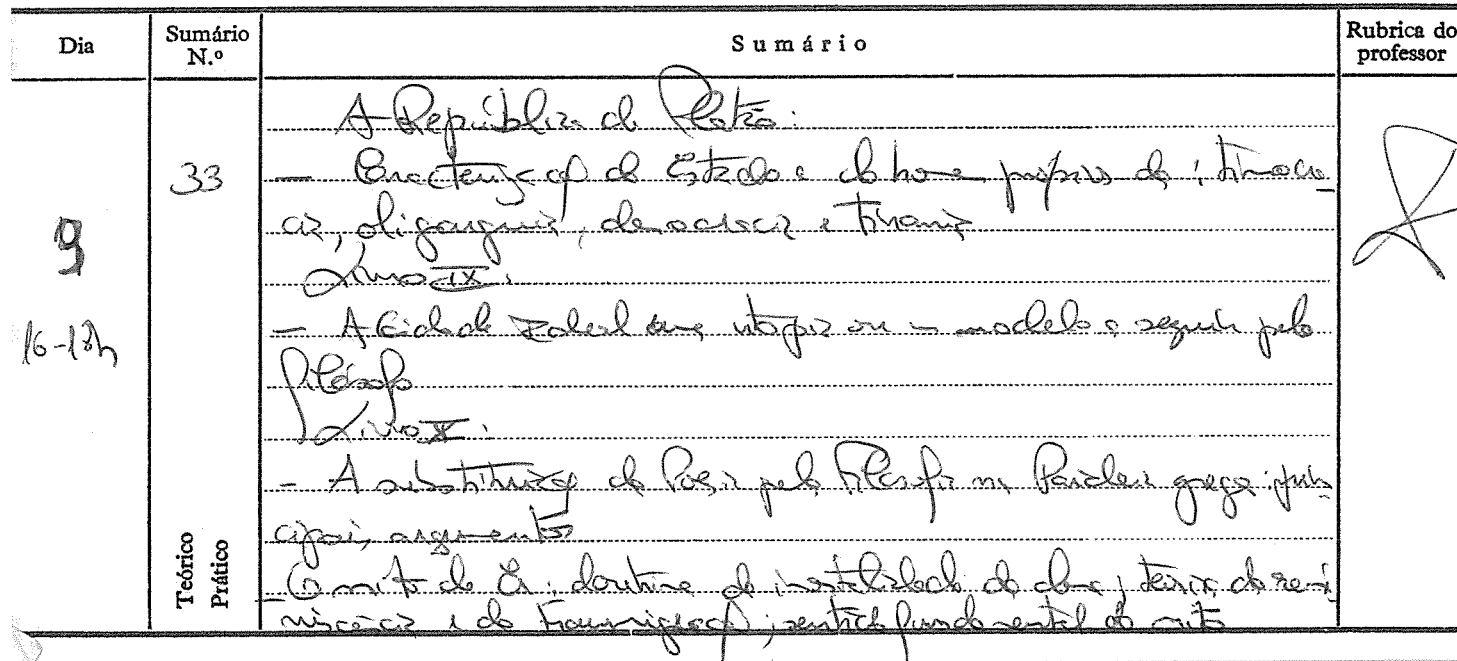 Dia
Sumário N.º
Sumário
Rubrica do professor
A República de Platão:
33
— Caracterização do Estado e do homem próprios da: timocra-
cia, oligarquia, democracia e tirania
9
Livro IX.
16-18h
— A Cidade Ideal uma utopia ou um modelo a seguir pelo
filósofo
Livro X:
— A substituição da Poesia pela Filosofia na Paideia grega: prin-
cipais argumentos
Teórico
Prático
— O mito de Er: doutrina da imortalidade da alma, teoria da remi-
niscência e da transmigração; sentido fundamental do mito